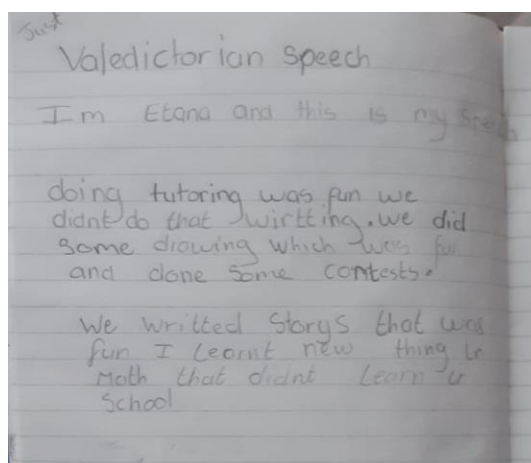 Just
Valedictorian Speech
Im Etana and this is my Spech
doing tutoring was fun we
didnt do that wirtting. we did
Some drawing which was fu
and done Some contests.
We writted Storys that was
fun I Learnt new thing in
Math that didnt Learn in
School